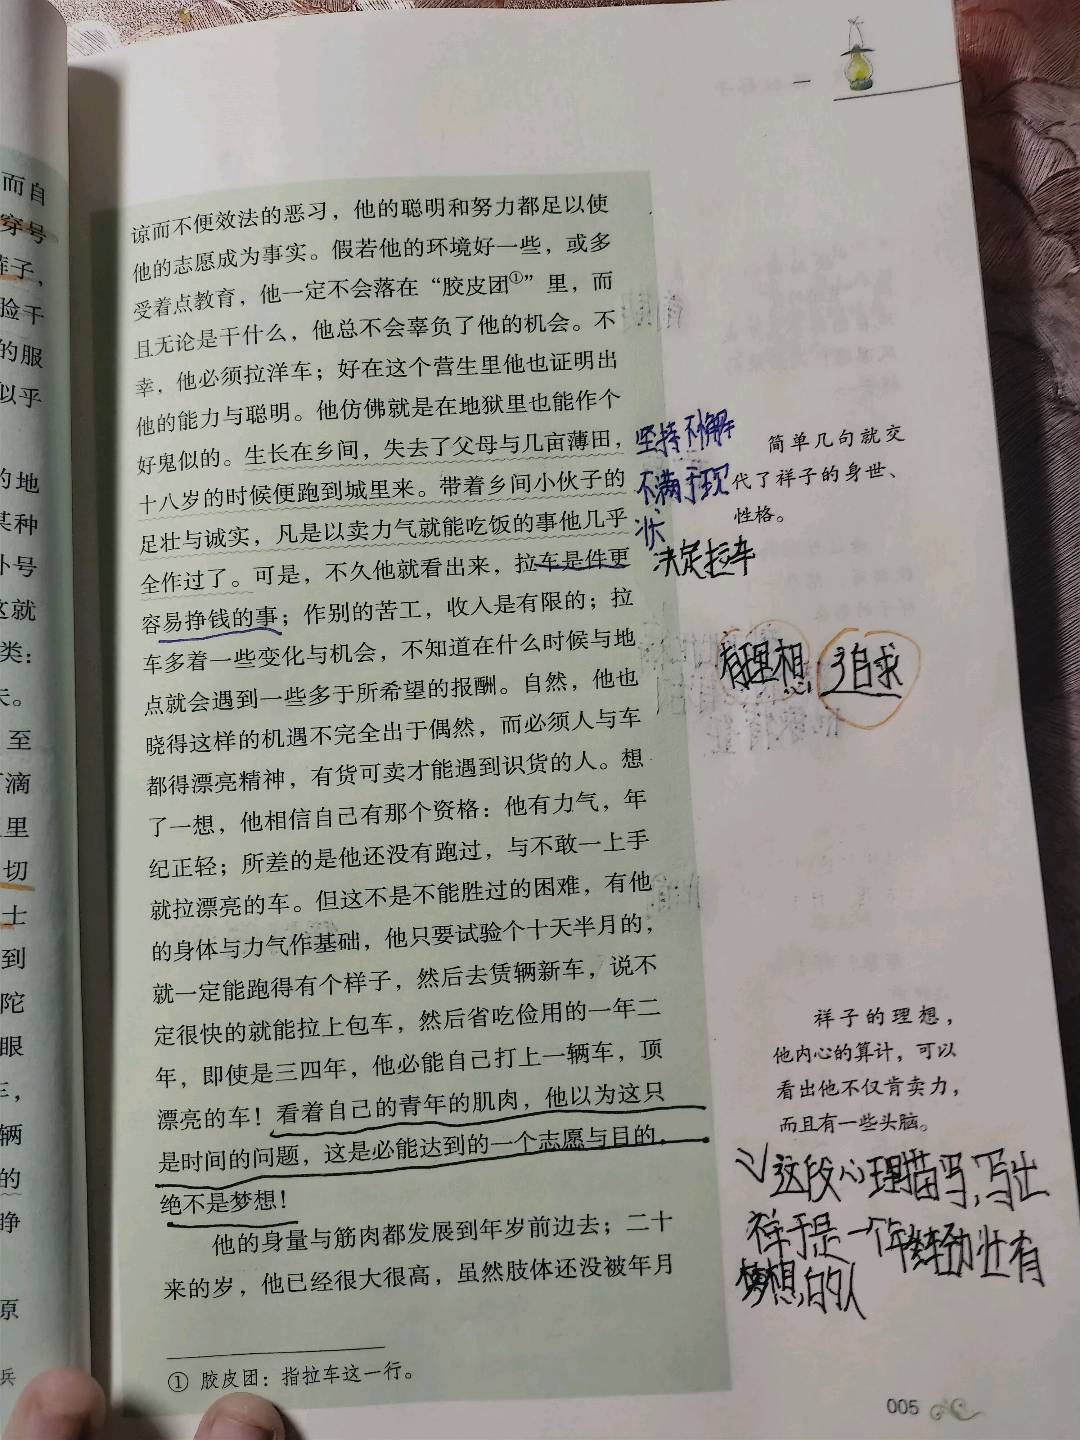 而自
穿号
裤子，
脸干
的服
似乎
的地
某种
外号
这就
类：
夫。
至
滴
里
切
士
到
陀
眼
车，
辆
的
睁
原
兵
一
谅而不便效法的恶习，他的聪明和努力都足以使
他的志愿成为事实。假若他的环境好一些，或多
受着点教育，他一定不会落在“胶皮团①”里，而
且无论是干什么，他总不会辜负了他的机会。不
幸，他必须拉洋车；好在这个营生里他也证明出
他的能力与聪明。他仿佛就是在地狱里也能作个
好鬼似的。生长在乡间，失去了父母与几亩薄田，
十八岁的时候便跑到城里来。带着乡间小伙子的
足壮与诚实，凡是以卖力气就能吃饭的事他几乎
全作过了。可是，不久他就看出来，拉车是件更
容易挣钱的事；作别的苦工，收入是有限的；拉
车多着一些变化与机会，不知道在什么时候与地
点就会遇到一些多于所希望的报酬。自然，他也
晓得这样的机遇不完全出于偶然，而必须人与车
都得漂亮精神，有货可卖才能遇到识货的人。想
了一想，他相信自己有那个资格：他有力气，年
纪正轻；所差的是他还没有跑过，与不敢一上手
就拉漂亮的车。但这不是不能胜过的困难，有他
的身体与力气作基础，他只要试验个十天半月的，
就一定能跑得有个样子，然后去赁辆新车，说不
定很快的就能拉上包车，然后省吃俭用的一年二
年，即使是三四年，他必能自己打上一辆车，顶
漂亮的车！看着自己的青年的肌肉，他以为这只
是时间的问题，这是必能达到的一个志愿与目的，
绝不是梦想！
他的身量与筋肉都发展到年岁前边去；二十
来的岁，他已经很大很高，虽然肢体还没被年月
① 胶皮团：指拉车这一行。
坚持不懈
不满于现
状
决定拉车
简单几句就交
代了祥子的身世、
性格。
有理想
追求
祥子的理想，
他内心的算计，可以
看出他不仅肯卖力，
而且有一些头脑。
这段心理描写，写出
祥子是一个年轻力壮有
梦想的人
005